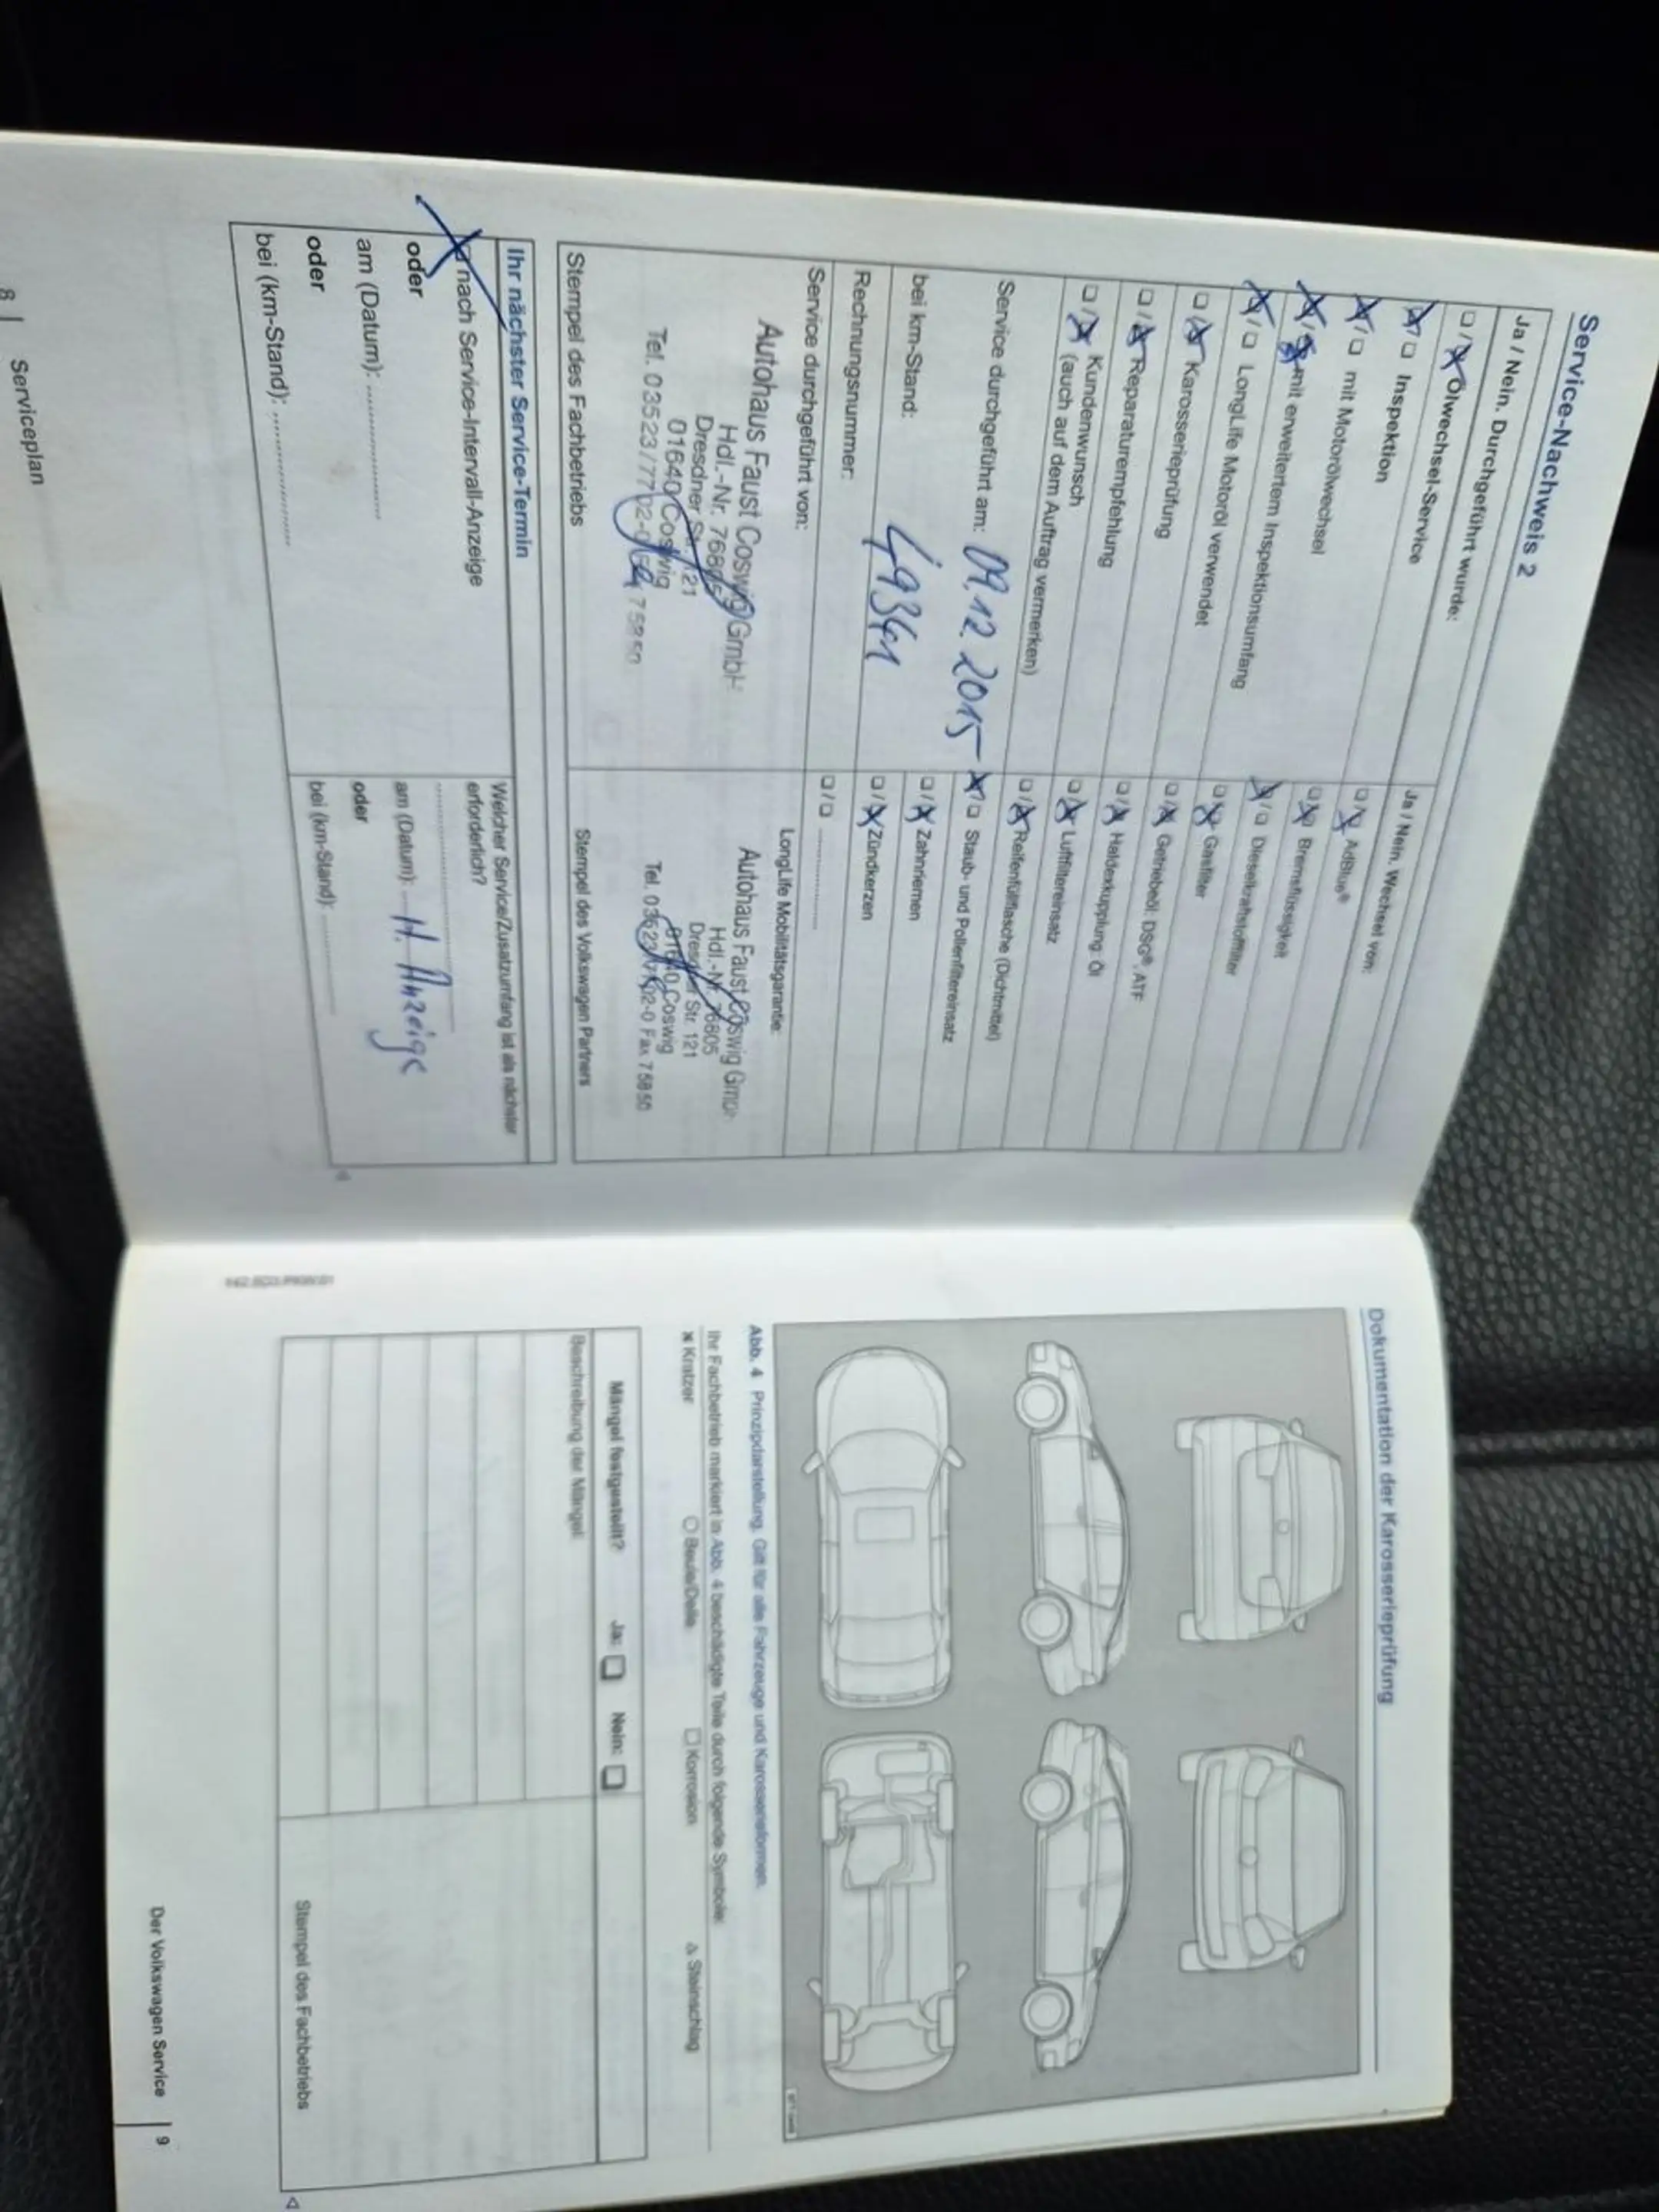 Service-Nachweis 2
Ja / Nein. Durchgeführt wurde:
☐/☒ Ölwechsel-Service
☒/☐ Inspektion
☒/☐ mit Motorölwechsel
☒/☒ mit erweitertem Inspektionsumfang
☒/☐ LongLife Motoröl verwendet
☐/☒ Karosserieprüfung
☐/☒ Reparaturempfehlung
☐/☒ Kundenwunsch
(auch auf dem Auftrag vermerken)
Service durchgeführt am: 09.12.2015
bei km-Stand: 49341
Rechnungsnummer:
Service durchgeführt von:
Autohaus Faust Coswig GmbH
Hdl.-Nr. 76805
Dresdner Str. 121
01640 Coswig
Tel. 03523/7702-0 Fax 75850
Stempel des Fachbetriebs
Ja / Nein. Wechsel von:
☐/☒ AdBlue®
☐/☒ Bremsflüssigkeit
☒/☐ Dieselkraftstofffilter
☐/☒ Gasfilter
☐/☒ Getriebeöl: DSG®, ATF
☐/☒ Haldexkupplung: Öl
☐/☒ Luftfiltereinsatz
☐/☒ Reifenfüllflasche (Dichtmittel)
☒/☐ Staub- und Pollenfiltereinsatz
☐/☒ Zahnriemen
☐/☒ Zündkerzen
☐/☐ ................
LongLife Mobilitätsgarantie:
Autohaus Faust Coswig GmbH
Hdl.-Nr. 76805
Dresdner Str. 121
01640 Coswig
Tel. 03523/7702-0 Fax 75850
Stempel des Volkswagen Partners
Ihr nächster Service-Termin
☒ nach Service-Intervall-Anzeige
oder
am (Datum): ................
oder
bei (km-Stand): ................
Welcher Service/Zusatzumfang ist als nächster
erforderlich?
................
am (Datum): lt. Anzeige
oder
bei (km-Stand): ................
8 | Serviceplan
Dokumentation der Karosserieprüfung
Abb. 4 Prinzipdarstellung. Gilt für alle Fahrzeuge und Karosserieformen.
Ihr Fachbetrieb markiert in Abb. 4 beschädigte Teile durch folgende Symbole:
x Kratzer ○ Beule/Delle □ Korrosion ▵ Steinschlag
Mängel festgestellt? Ja: ☐ Nein: ☐
Beschreibung der Mängel:
Stempel des Fachbetriebs
Der Volkswagen Service | 9